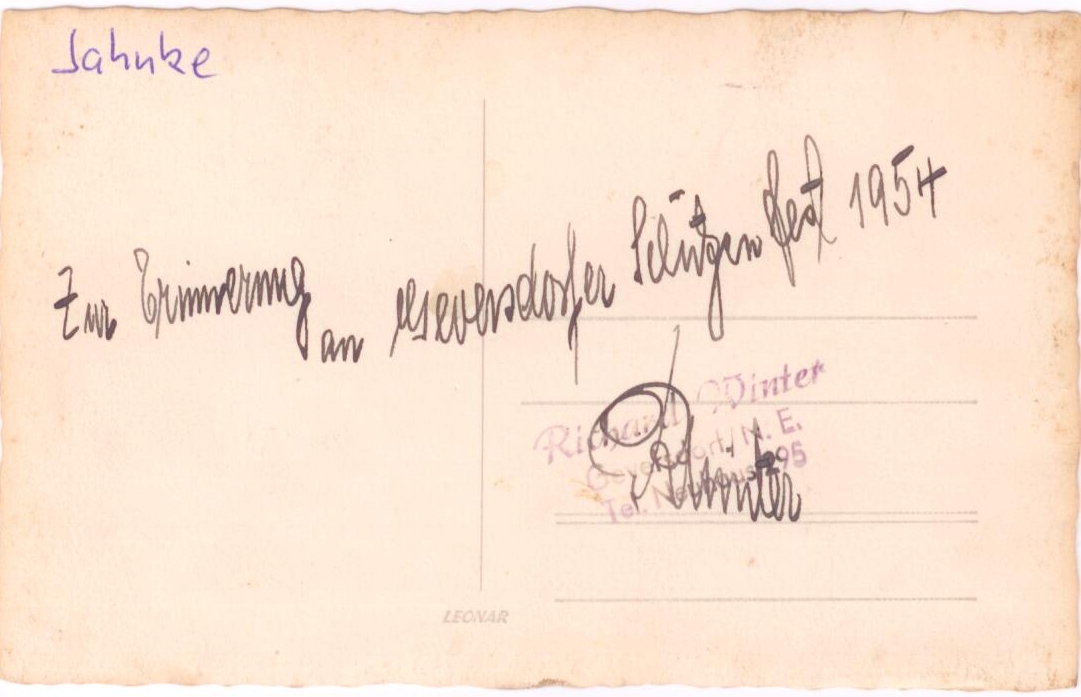 Jahnke
Zur Erinnerung an Geversdorfer Schützenfest 1954
Richard Winter
Geversdorf / N. E.
Tel. Neuhaus 295
RWinter
LEONAR